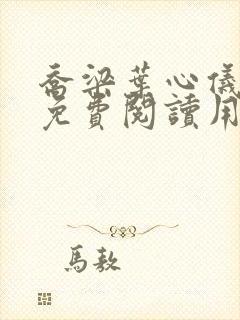 喬梁葉心儀
免費閱讀用
馬敖